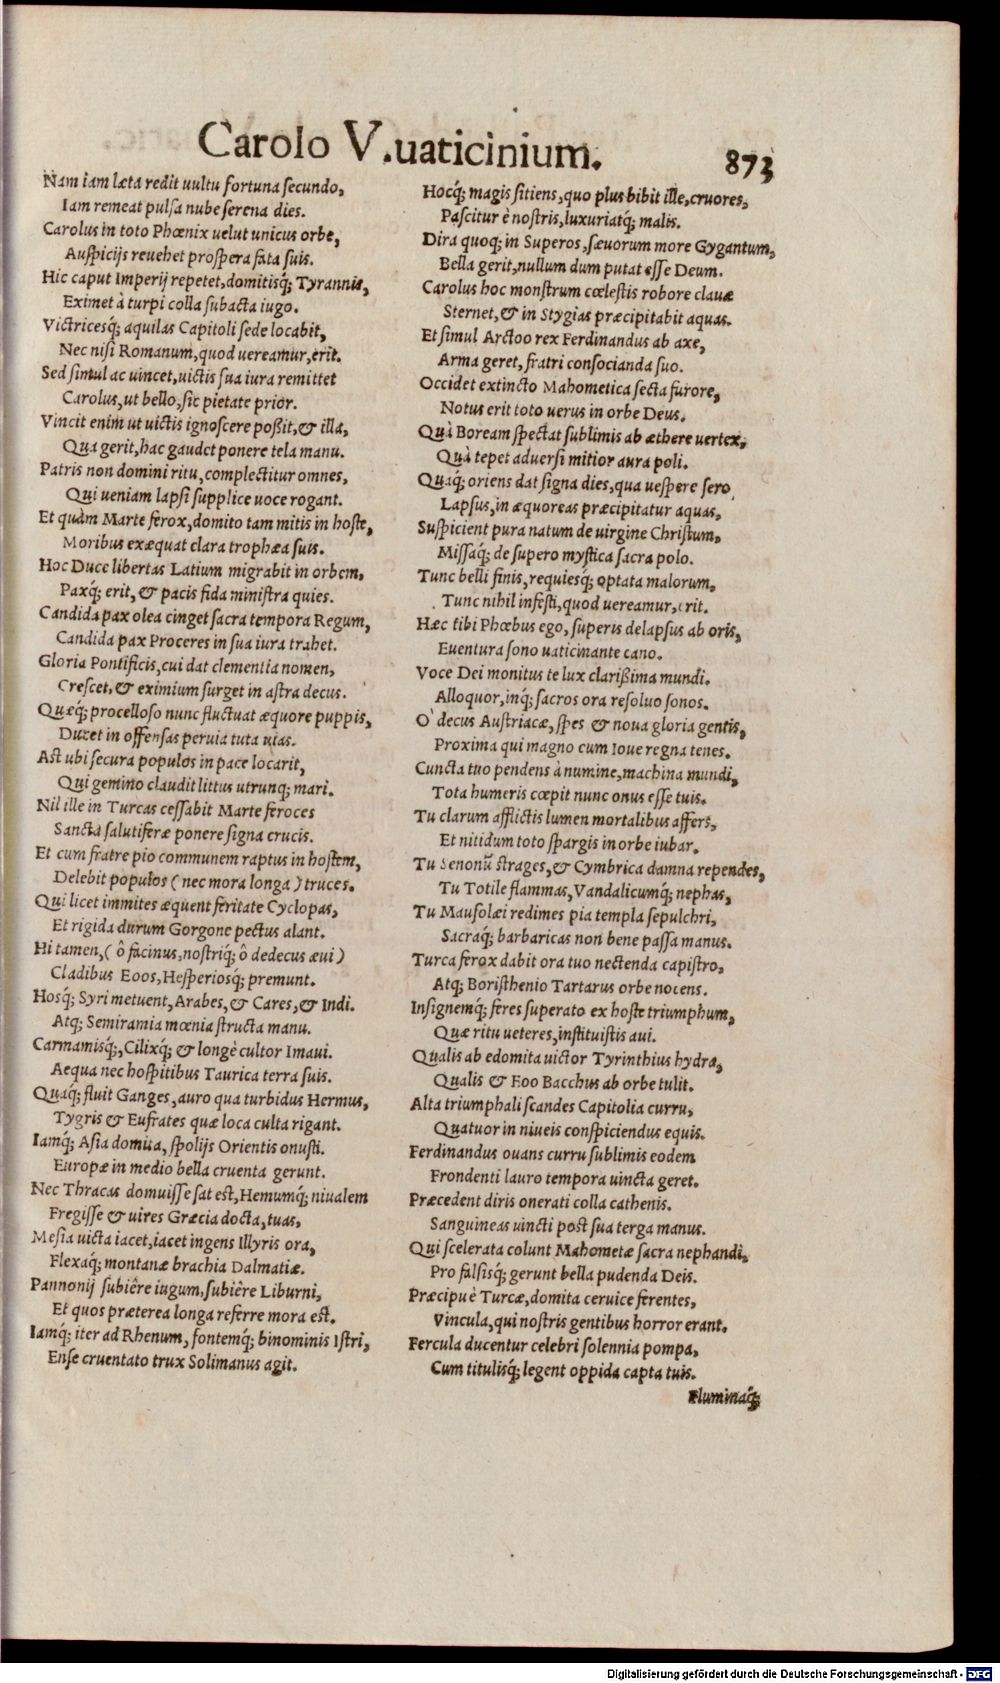 Carolo V.uaticinium.
873
Nam iam læta redit uultu fortuna secundo,
Iam remeat pulsa nube serena dies.
Carolus in toto Phœnix uelut unicus orbe,
Auspicijs reuehet prospera fata suis.
Hic caput Imperij repetet, domitisq́; Tyrannis,
Eximet à turpi colla subacta iugo.
Victricesq́; aquilas Capitoli sede locabit,
Nec nisi Romanum, quod uereamur, erit.
Sed simul ac uincet, uictis sua iura remittet
Carolus, ut bello, sic pietate prior.
Vincit enim ut uictis ignoscere poßit, & illa,
Qua gerit, hac gaudet ponere tela manu.
Patris non domini ritu, complectitur omnes,
Qui ueniam lapsi supplice uoce rogant.
Et quàm Marte ferox, domito tam mitis in hoste,
Moribus exæquat clara trophæa suis.
Hoc Duce libertas Latium migrabit in orbem,
Paxq́; erit, & pacis fida ministra quies.
Candida pax olea cinget sacra tempora Regum,
Candida pax Proceres in sua iura trahet.
Gloria Pontificis, cui dat clementia nomen,
Crescet, & eximium surget in astra decus.
Quæq́; procelloso nunc fluctuat æquore puppis,
Ducet in offensas peruia tuta uias.
Ast ubi secura populos in pace locarit,
Qui gemino claudit littus utrunq; mari.
Nil ille in Turcas cessabit Marte feroces
Sancta salutiferæ ponere signa crucis.
Et cum fratre pio communem raptus in hostem,
Delebit populos (nec mora longa) truces.
Qui licet immites æquent feritate Cyclopas,
Et rigida durum Gorgone pectus alant.
Hi tamen, (ô facinus, nostriq́; ô dedecus æui)
Cladibus Eoos, Hesperiosq́; premunt.
Hosq́; Syri metuent, Arabes, & Cares, & Indi.
Atq; Semiramia mœnia structa manu.
Carmamisq́;, Cilixq́; & longè cultor Imaui.
Aequa nec hospitibus Taurica terra suis.
Quaq́; fluit Ganges, auro qua turbidus Hermus,
Tygris & Eufrates quæ loca culta rigant.
Iamq́; Asia domita, spolijs Orientis onusti.
Europæ in medio bella cruenta gerunt.
Nec Thracas domuisse sat est, Hemumq́; niualem
Fregisse & uires Græcia docta, tuas,
Mesia uicta iacet, iacet ingens Illyris ora,
Flexaq́; montanæ brachia Dalmatiæ.
Pannonij subiêre iugum, subiêre Liburni,
Et quos præterea longa referre mora est.
Iamq́; iter ad Rhenum, fontemq́; binominis Istri,
Ense cruentato trux Solimanus agit.
Hocq́; magis sitiens, quo plus bibit ille, cruores,
Pascitur è nostris, luxuriatq́; malis.
Dira quoq; in Superos, sæuorum more Gygantum,
Bella gerit, nullum dum putat esse Deum.
Carolus hoc monstrum cœlestis robore clauæ
Sternet, & in Stygias præcipitabit aquas.
Et simul Arctoo rex Ferdinandus ab axe,
Arma geret, fratri consocianda suo.
Occidet extincto Mahometica secta furore,
Notus erit toto uerus in orbe Deus.
Quà Boream spectat sublimis ab æthere uertex,
Quà tepet aduersi mitior aura poli.
Quaq́; oriens dat signa dies, qua uespere sero
Lapsus, in æquoreas præcipitatur aquas,
Suspicient pura natum de uirgine Christum,
Missaq́; de supero mystica sacra polo.
Tunc belli finis, requiesq́; optata malorum,
Tunc nihil infesti, quod uereamur, erit.
Hæc tibi Phœbus ego, superis delapsus ab oris,
Euentura sono uaticinante cano.
Voce Dei monitus te lux clarißima mundi.
Alloquor, inq́; sacros ora resoluo sonos.
O' decus Austriacæ, spes & noua gloria gentis,
Proxima qui magno cum Ioue regna tenes.
Cuncta tuo pendens à numine, machina mundi,
Tota humeris cœpit nunc onus esse tuis.
Tu clarum afflictis lumen mortalibus affers,
Et nitidum toto spargis in orbe iubar.
Tu Senonũ strages, & Cymbrica damna rependes,
Tu Totile flammas, Vandalicumq́; nephas,
Tu Mausolæi redimes pia templa sepulchri,
Sacraq́; barbaricas non bene passa manus.
Turca ferox dabit ora tuo nectenda capistro,
Atq; Boristhenio Tartarus orbe nocens.
Insignemq́; feres superato ex hoste triumphum,
Quæ ritu ueteres, instituistis aui.
Qualis ab edomita uictor Tyrinthius hydra,
Qualis & Eoo Bacchus ab orbe tulit.
Alta triumphali scandes Capitolia curru,
Quatuor in niueis conspiciendus equis.
Ferdinandus ouans curru sublimis eodem
Frondenti lauro tempora uincta geret.
Præcedent diris onerati colla cathenis.
Sanguineas uincti post sua terga manus.
Qui scelerata colunt Mahometæ sacra nephandi,
Pro falsisq́; gerunt bella pudenda Deis.
Præcipuè Turcæ, domita ceruice ferentes,
Vincula, qui nostris gentibus horror erant.
Fercula ducentur celebri solennia pompa,
Cum titulisq́; legent oppida capta tuis.
Fluminaq́;
Digitalisierung gefördert durch die Deutsche Forschungsgemeinschaft - DFG